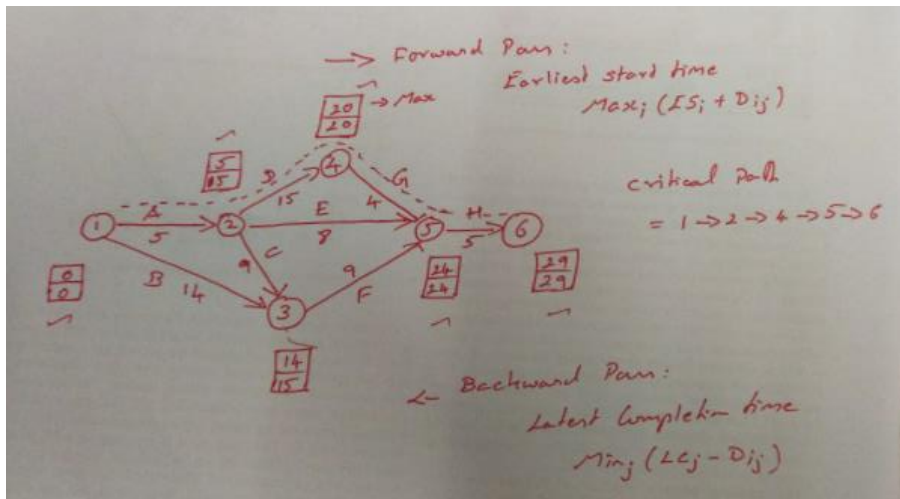 → Forward Pass:
Earliest start time
Max j (ES i + D ij)
20
20
→ Max
5
15
D
15
4
G
4
critical path
= 1 → 2 → 4 → 5 → 6
1
A
5
2
E
8
5
H
5
6
B
14
9
C
9
F
0
0
3
24
24
29
29
14
15
← Backward Pass:
Latest Completion time
Min j (LC j - D ij)